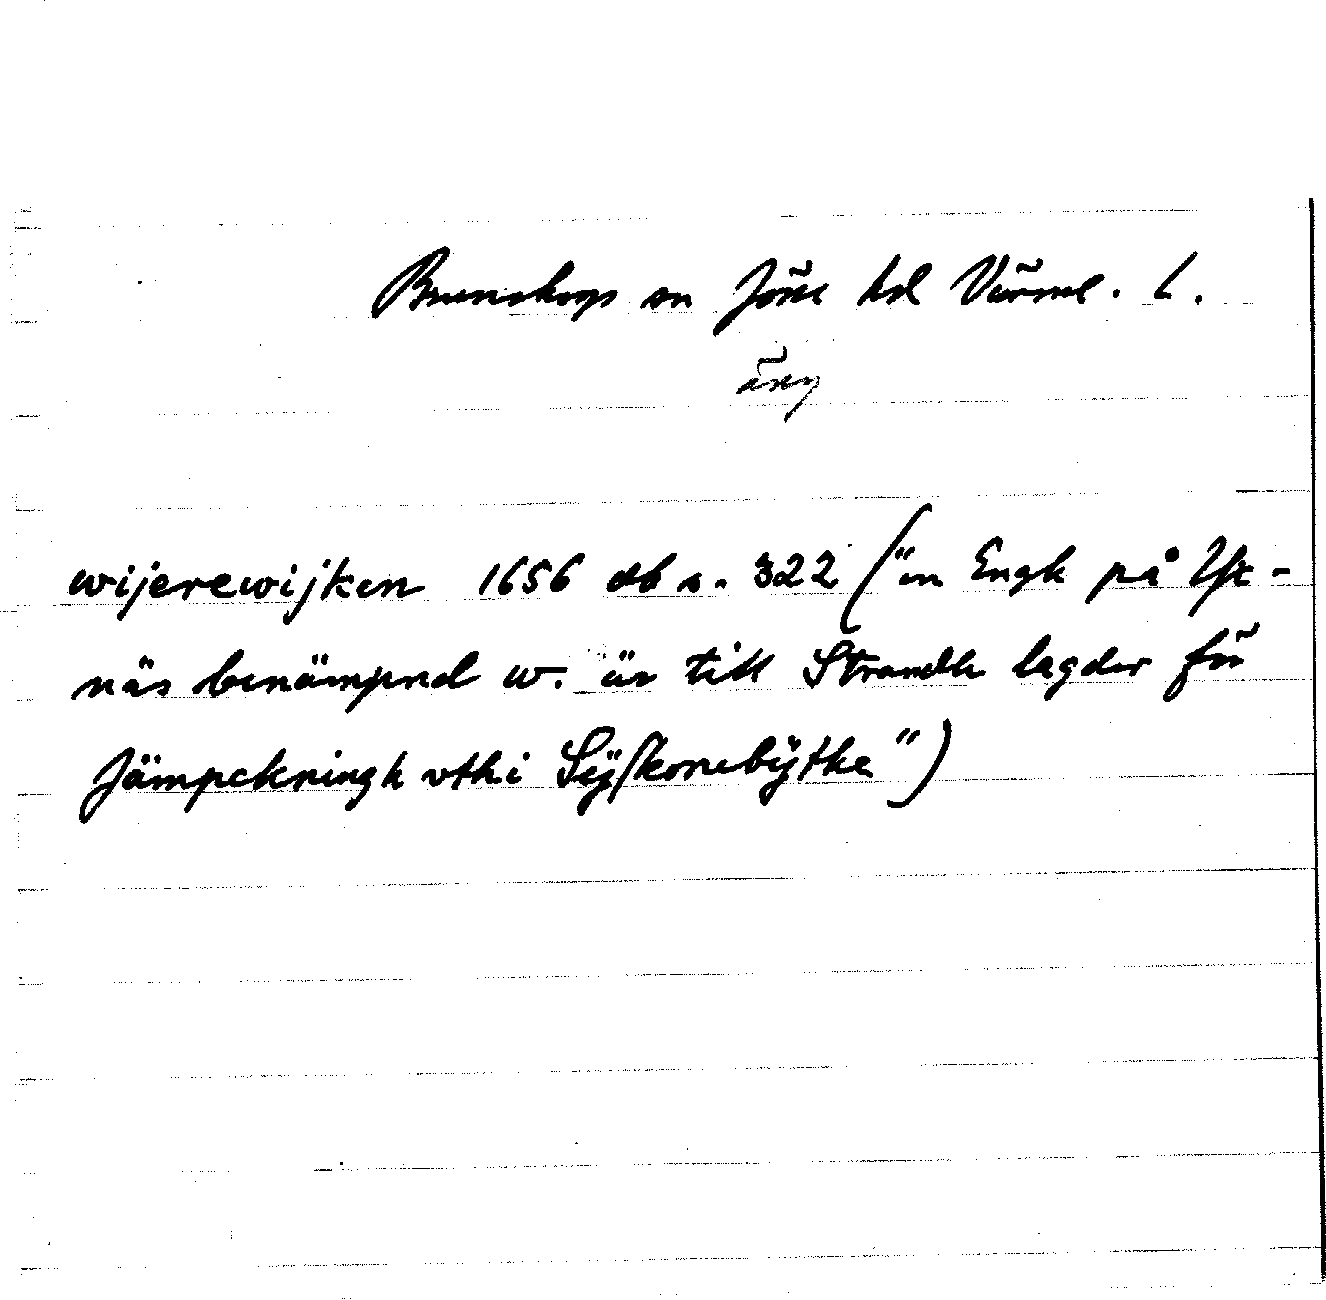 Brunskogs sn Jösse hd Värml. l.
äng
wijerewijken 1656 db s. 322 ("en Engh på
näs benämpnd w. är till Strandh lagder för
Jämpckningh vthi Sÿskonebÿthe")